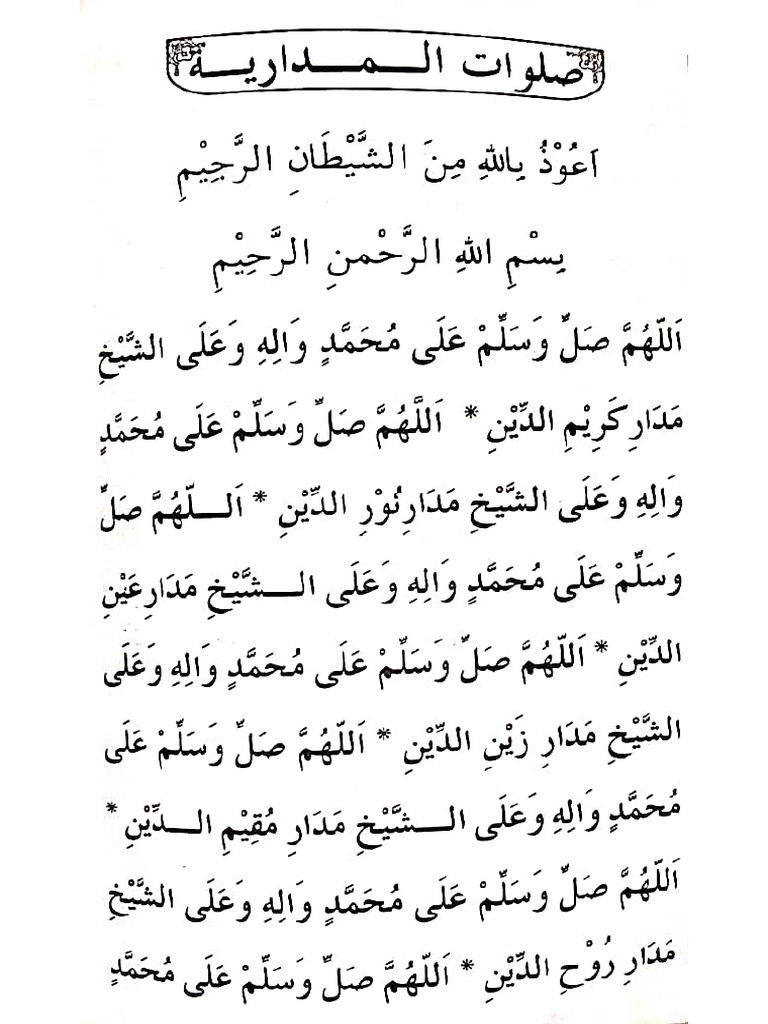 صلوات المداریة
اَعُوْذُ بِاللهِ مِنَ الشَّيْطَانِ الرَّجِيْمِ
بِسْمِ اللهِ الرَّحْمنِ الرَّحِيْمِ
اَللّٰهُمَّ صَلِّ وَسَلِّمْ عَلَى مُحَمَّدٍ وَالِهِ وَعَلَى الشَّيْخِ
مَدَارِ كَرِيْمِ الدِّيْنِ * اَللَّهُمَّ صَلِّ وَسَلِّمْ عَلَى مُحَمَّدٍ
وَالِهِ وَعَلَى الشَّيْخِ مَدَارِ نُوْرِ الدِّيْنِ * اَللّٰهُمَّ صَلِّ
وَسَلِّمْ عَلَى مُحَمَّدٍ وَالِهِ وَعَلَى الشَّيْخِ مَدَارِ عَيْنِ
الدِّيْنِ * اَللّٰهُمَّ صَلِّ وَسَلِّمْ عَلَى مُحَمَّدٍ وَالِهِ وَعَلَى
الشَّيْخِ مَدَارِ زَيْنِ الدِّيْنِ * اَللّٰهُمَّ صَلِّ وَسَلِّمْ عَلَى
مُحَمَّدٍ وَالِهِ وَعَلَى الشَّيْخِ مَدَارِ مُقِيْمِ الدِّيْنِ *
اَللّٰهُمَّ صَلِّ وَسَلِّمْ عَلَى مُحَمَّدٍ وَالِهِ وَعَلَى الشَّيْخِ
مَدَارِ رُوْحِ الدِّيْنِ * اَللّٰهُمَّ صَلِّ وَسَلِّمْ عَلَى مُحَمَّدٍ